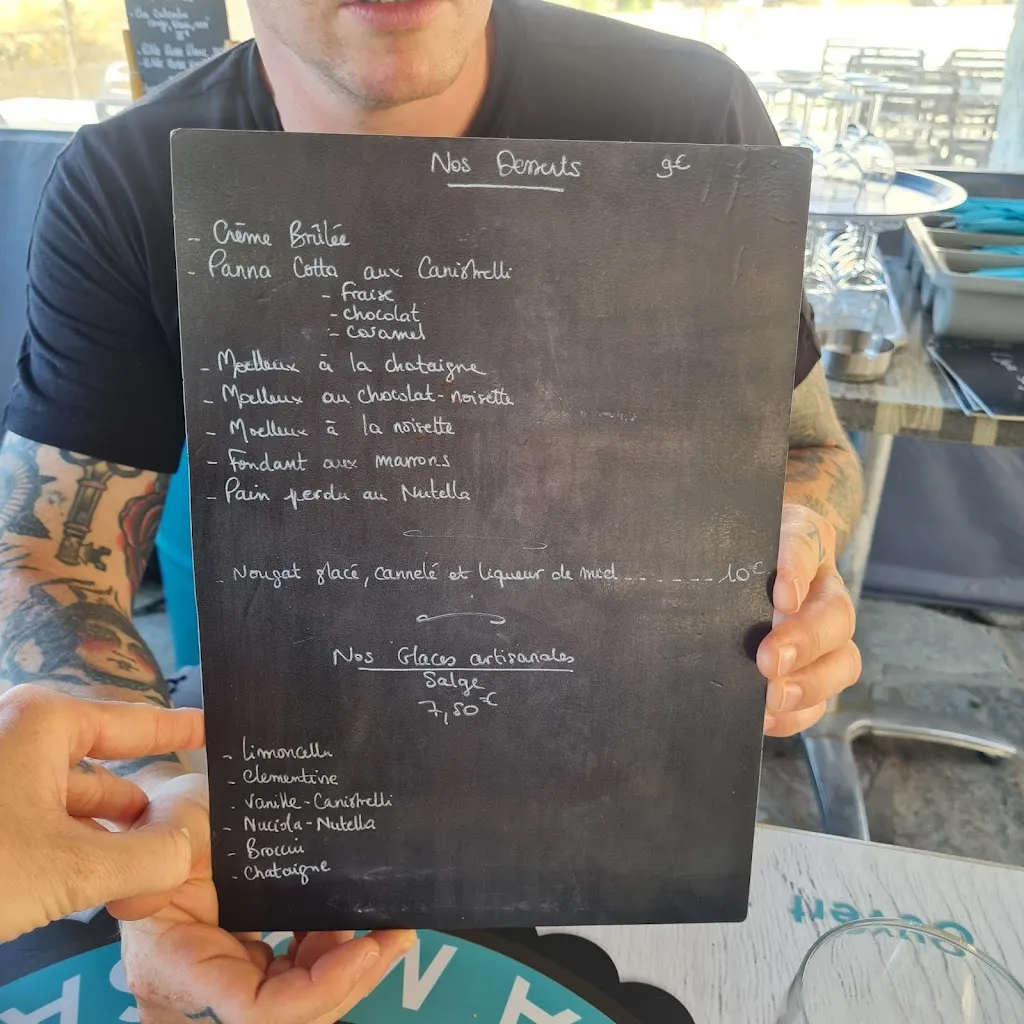 Nos Desserts 9€
- Crème Brûlée
- Panna Cotta aux Canistrelli
- Fraise
- chocolat
- caramel
- Moelleux à la chataigne
- Moelleux au chocolat-noisette
- Moelleux à la noisette
- Fondant aux marrons
- Pain perdu au Nutella
- Nougat glacé, cannelé et liqueur de miel ------ 10€
Nos Glaces artisanales
Salge
7,50€
- Limoncellu
- Clementine
- Vanille-Canistrelli
- Nuciola-Nutella
- Brocciu
- Chataigne
Ouvert